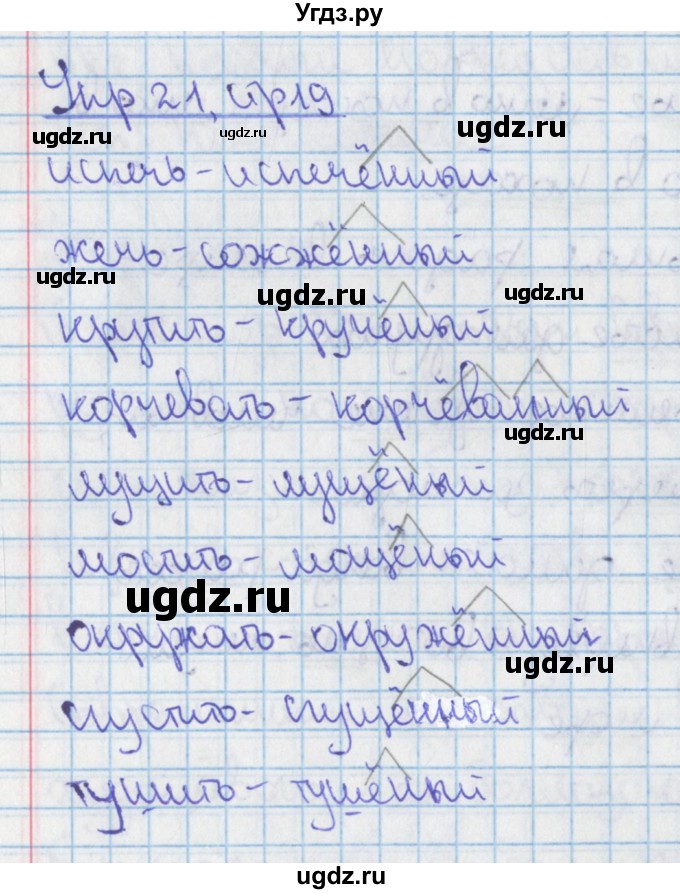 Угдз.ру
Упр 21, стр19
ugdz.ru ugdz.ru ugdz.ru
испечь - испечённый
жечь - сожжённый
ugdz.ru ugdz.ru ugdz.ru
крутить - кручёный
корчевать - корчёванный
ugdz.ru
лущить - лущёный
мостить - мощёный
ugdz.ru
окружать - окружённый
ugdz.ru
сгустить - сгущённый
тушить - тушёный
ugdz.ru